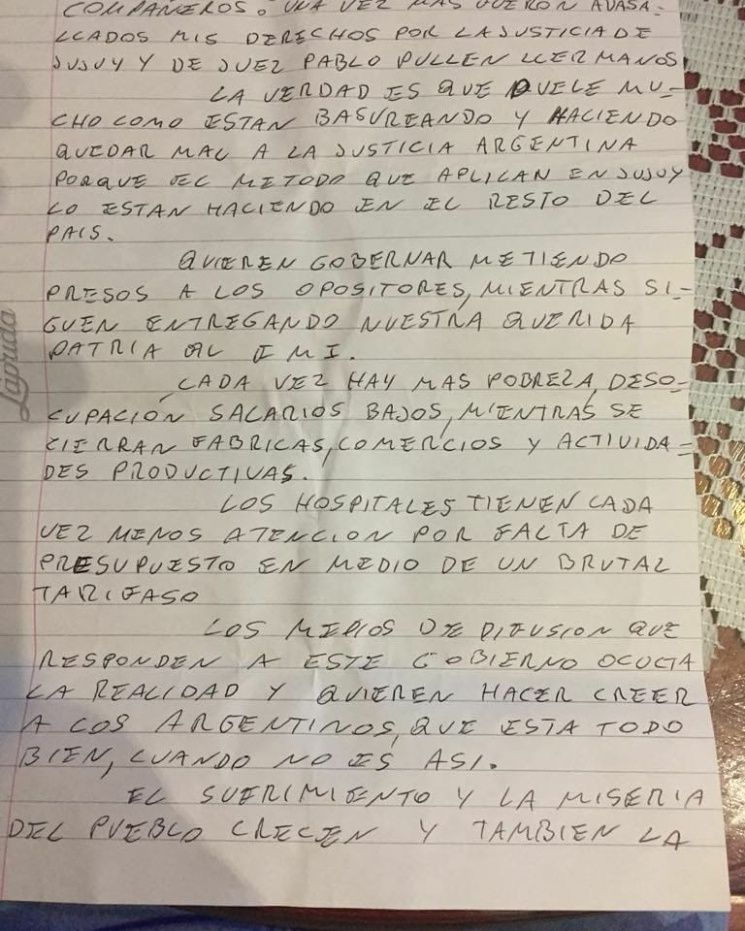 COMPAÑEROS. UNA VEZ MAS FUERON AVASA-
LLADOS MIS DERECHOS POR LA JUSTICIA DE
JUJUY Y DE JUEZ PABLO PULLEN LLERMANOS
LA VERDAD ES QUE DUELE MU-
CHO COMO ESTAN BASUREANDO Y HACIENDO
QUEDAR MAL A LA JUSTICIA ARGENTINA
PORQUE EL METODO QUE APLICAN EN JUJUY
LO ESTAN HACIENDO EN EL RESTO DEL
PAIS.
QUIEREN GOBERNAR METIENDO
PRESOS A LOS OPOSITORES, MIENTRAS SI-
GUEN ENTREGANDO NUESTRA QUERIDA
PATRIA AL F M I.
CADA VEZ HAY MAS POBREZA, DESO-
CUPACIÓN SALARIOS BAJOS, MIENTRAS SE
CIERRAN FABRICAS, COMERCIOS Y ACTIVIDA-
DES PRODUCTIVAS.
LOS HOSPITALES TIENEN CADA
VEZ MENOS ATENCION POR FALTA DE
PRESUPUESTO EN MEDIO DE UN BRUTAL
TARIFASO
LOS MEDIOS DE DIFUSION QUE
RESPONDEN A ESTE GOBIERNO OCULTA
LA REALIDAD Y QUIEREN HACER CREER
A LOS ARGENTINOS, QUE ESTA TODO
BIEN, CUANDO NO ES ASI.
EL SUFRIMIENTO Y LA MISERIA
DEL PUEBLO CRECEN Y TAMBIEN LA
Laprida